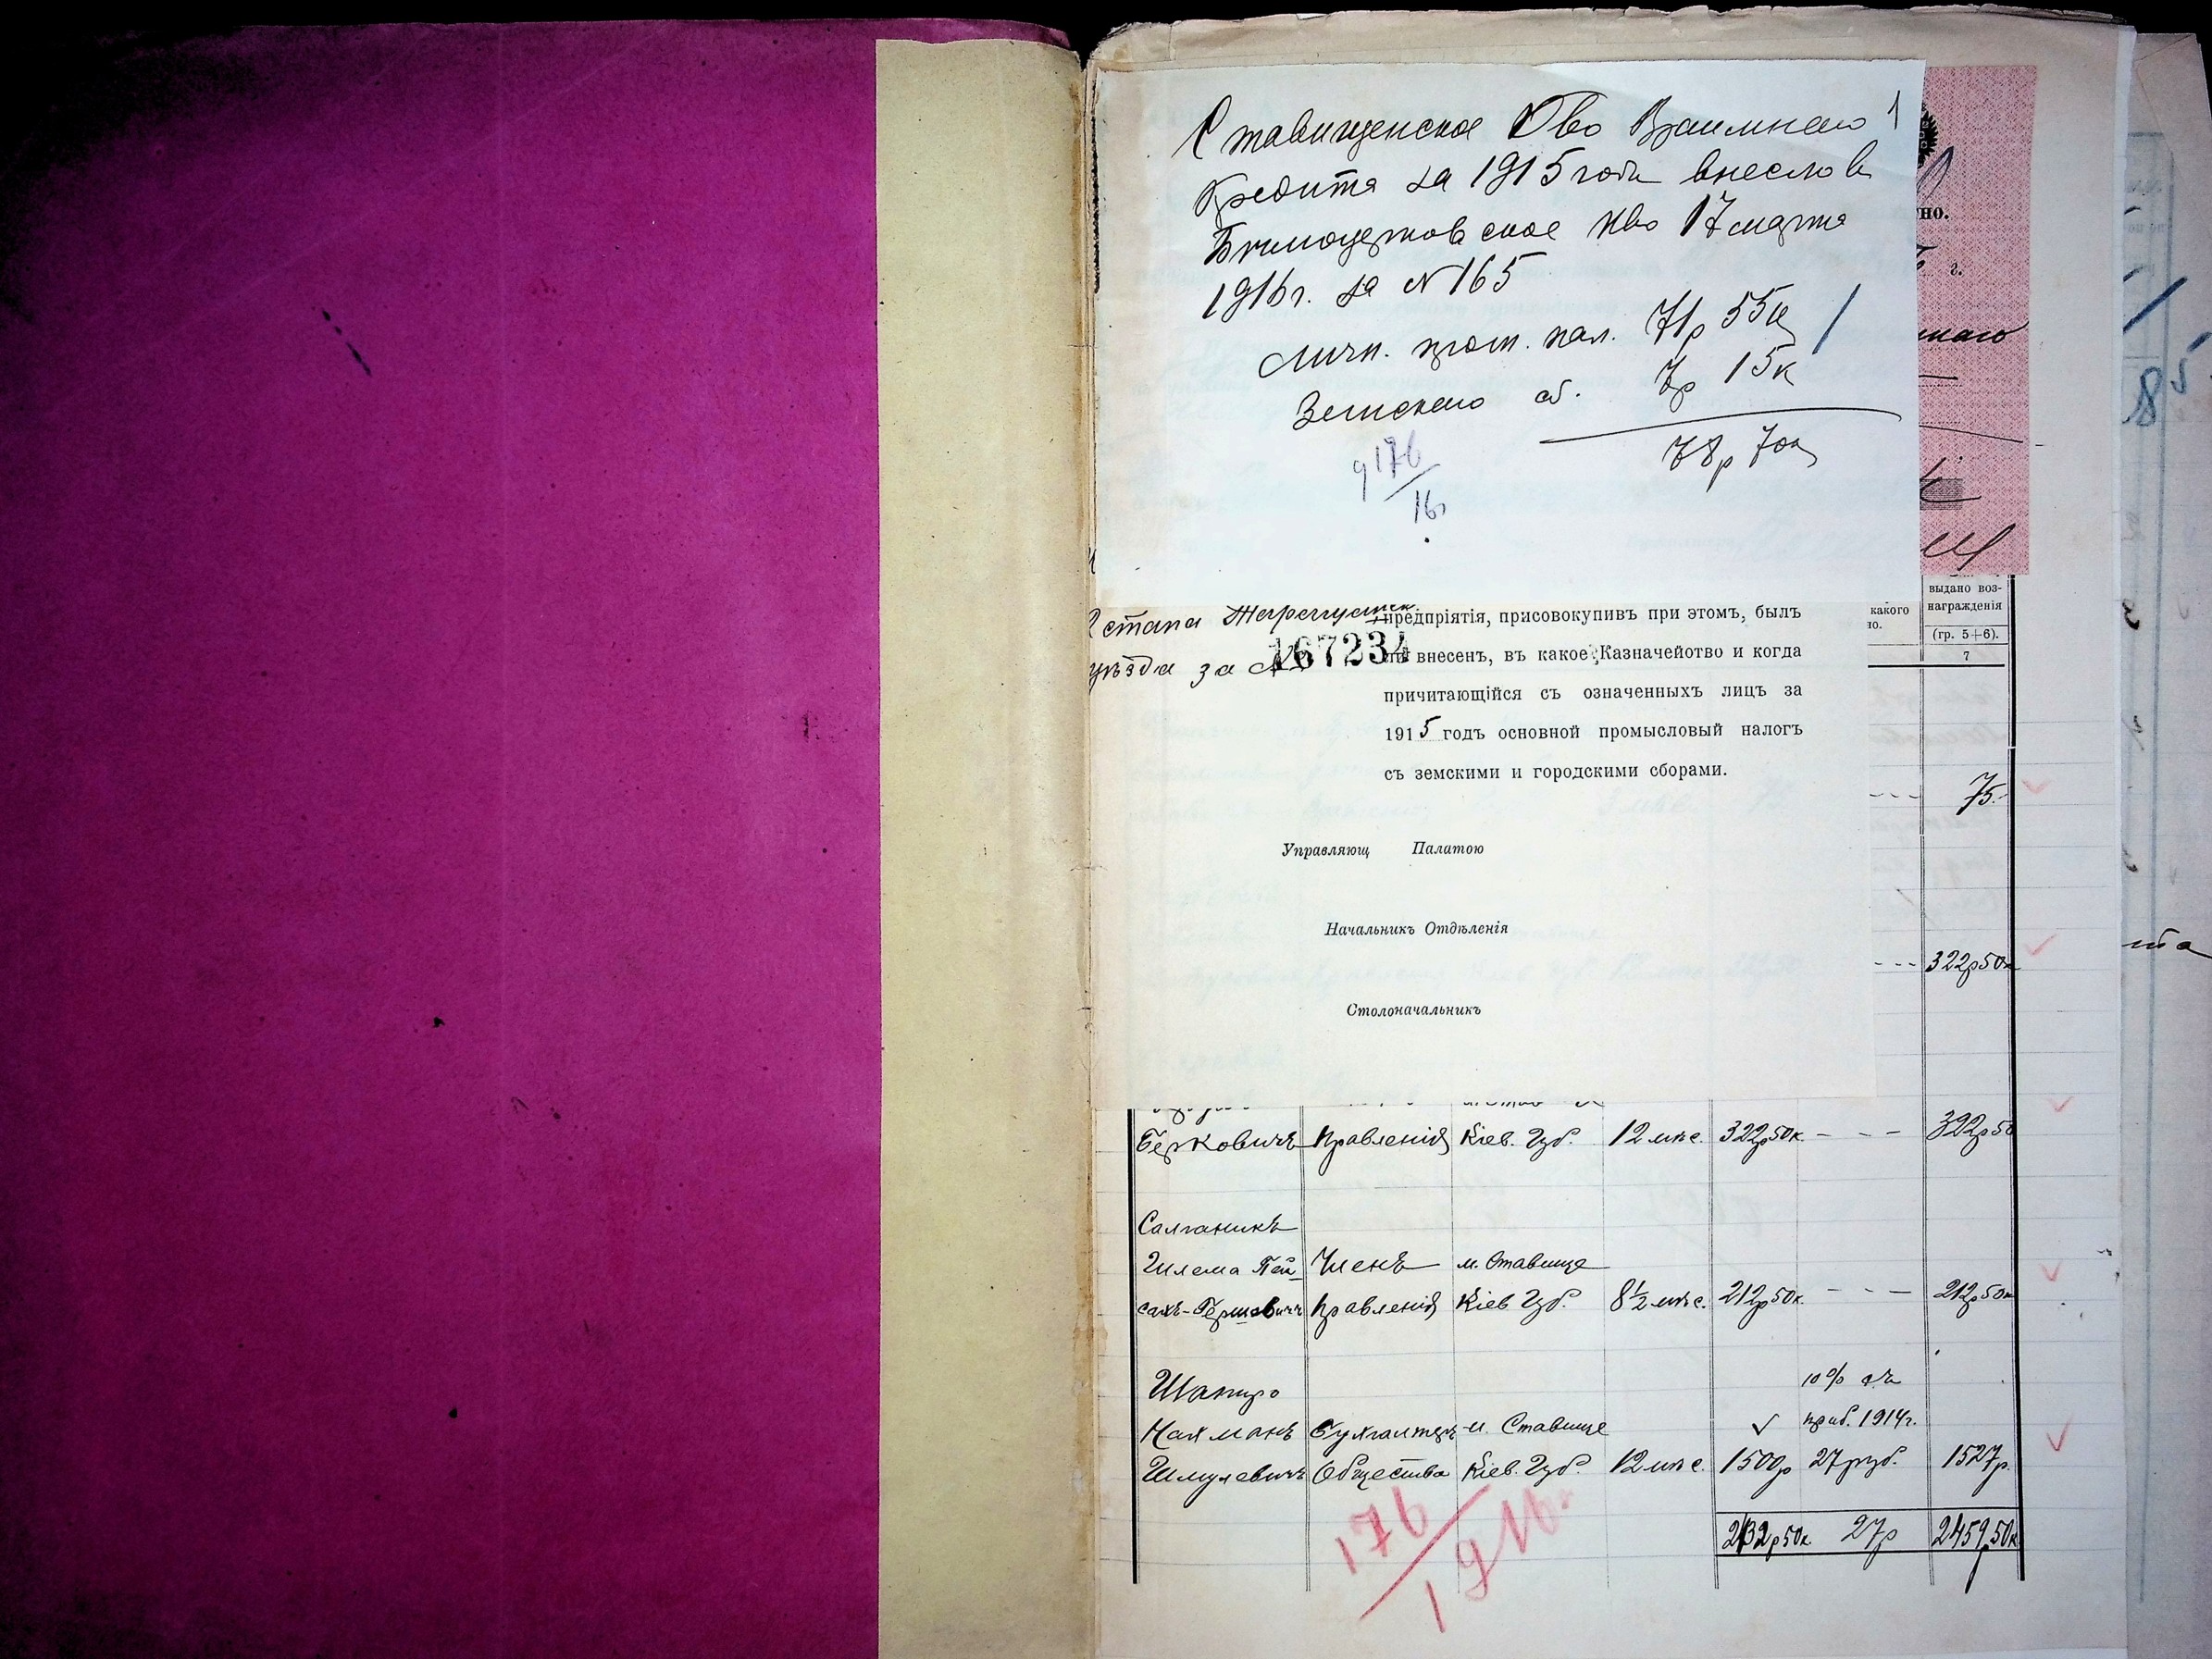 1
Ставищенское О-во Взаимнаго
Кредита за 1915 годъ внесло въ
Бѣлоцерковское к-во 17 марта
1916 г. за № 165
Личн. пром. нал. 71р 55к
Земскаго сб. 7р 15к
78р 70к
176
16
но.
г.
наго
85
2 стана Таращанск.
уѣзда за №
167234
предпріятія, присовокупивъ при этомъ, былъ
внесенъ, въ какое Казначейство и когда
причитающійся съ означенныхъ лицъ за
1915 годъ основной промысловый налогъ
съ земскими и городскими сборами.
Управляющ Палатою
Начальникъ Отдѣленія
Столоначальникъ
какого
но.
выдано воз-
награжденія
(гр. 5+6).
7
- - - 75.-
- - - 322р50к
Берковичъ Правленія Кіев. Губ. 12 мѣс. 322р50к. - - - 322р50
Салганикъ
Шлема Пей- Членъ м. Ставище
сахъ-Гершовичъ Правленія Кіев Губ. 8½ мѣс. 212р50к. - - - 212р50к
Шапиро 10% съ
Нахманъ Бухгалтеръ м. Ставище приб. 1914г.
Шмулевичъ Общества Кіев. Губ. 12 мѣс. 1500р 27 руб. 1527р.
2432р50к. 27р 2459р50к
176
1916г